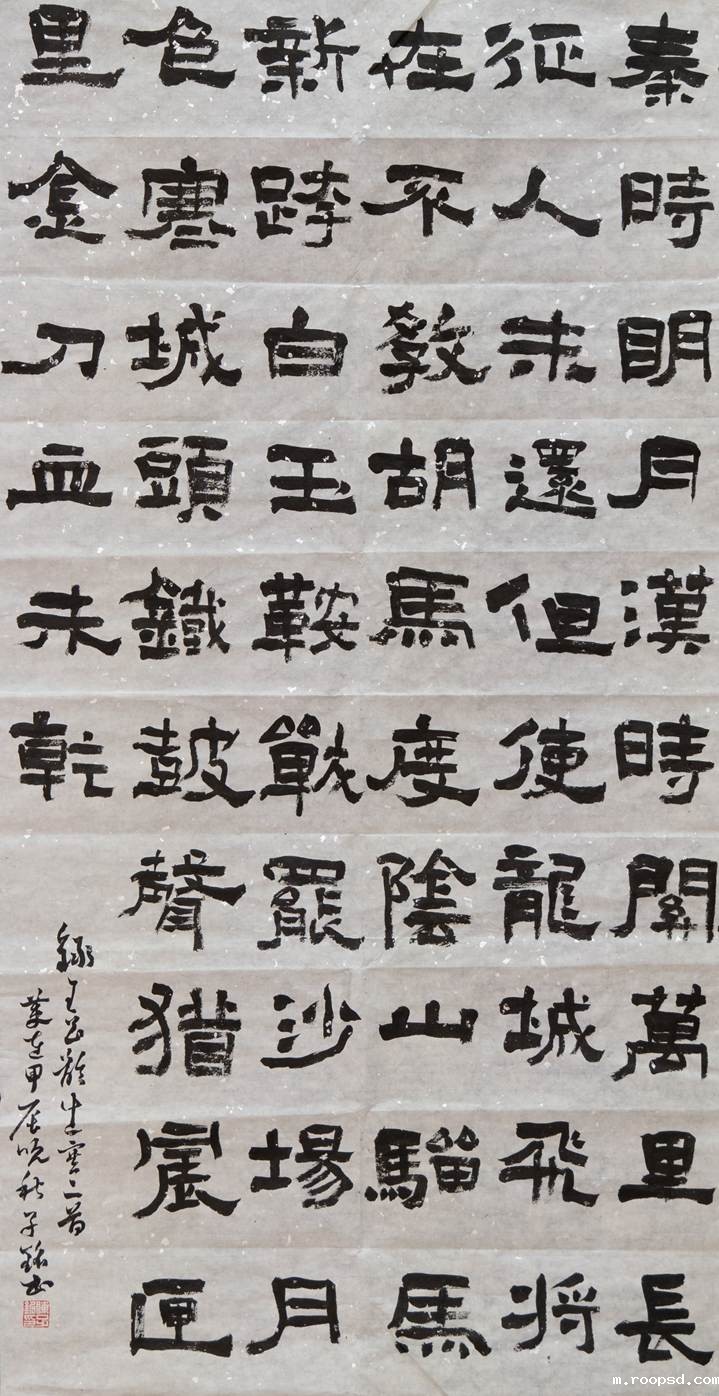 秦時明月漢時關萬里長
征人未還但使龍城飛將
在不教胡馬度陰山騮馬
新跨白玉鞍戰罷沙場月
色寒城頭鐵鼓聲猶震匣
里金刀血未乾
錄王昌齡出塞二首
歲在甲辰晚秋子銘書
m.roopsd.com